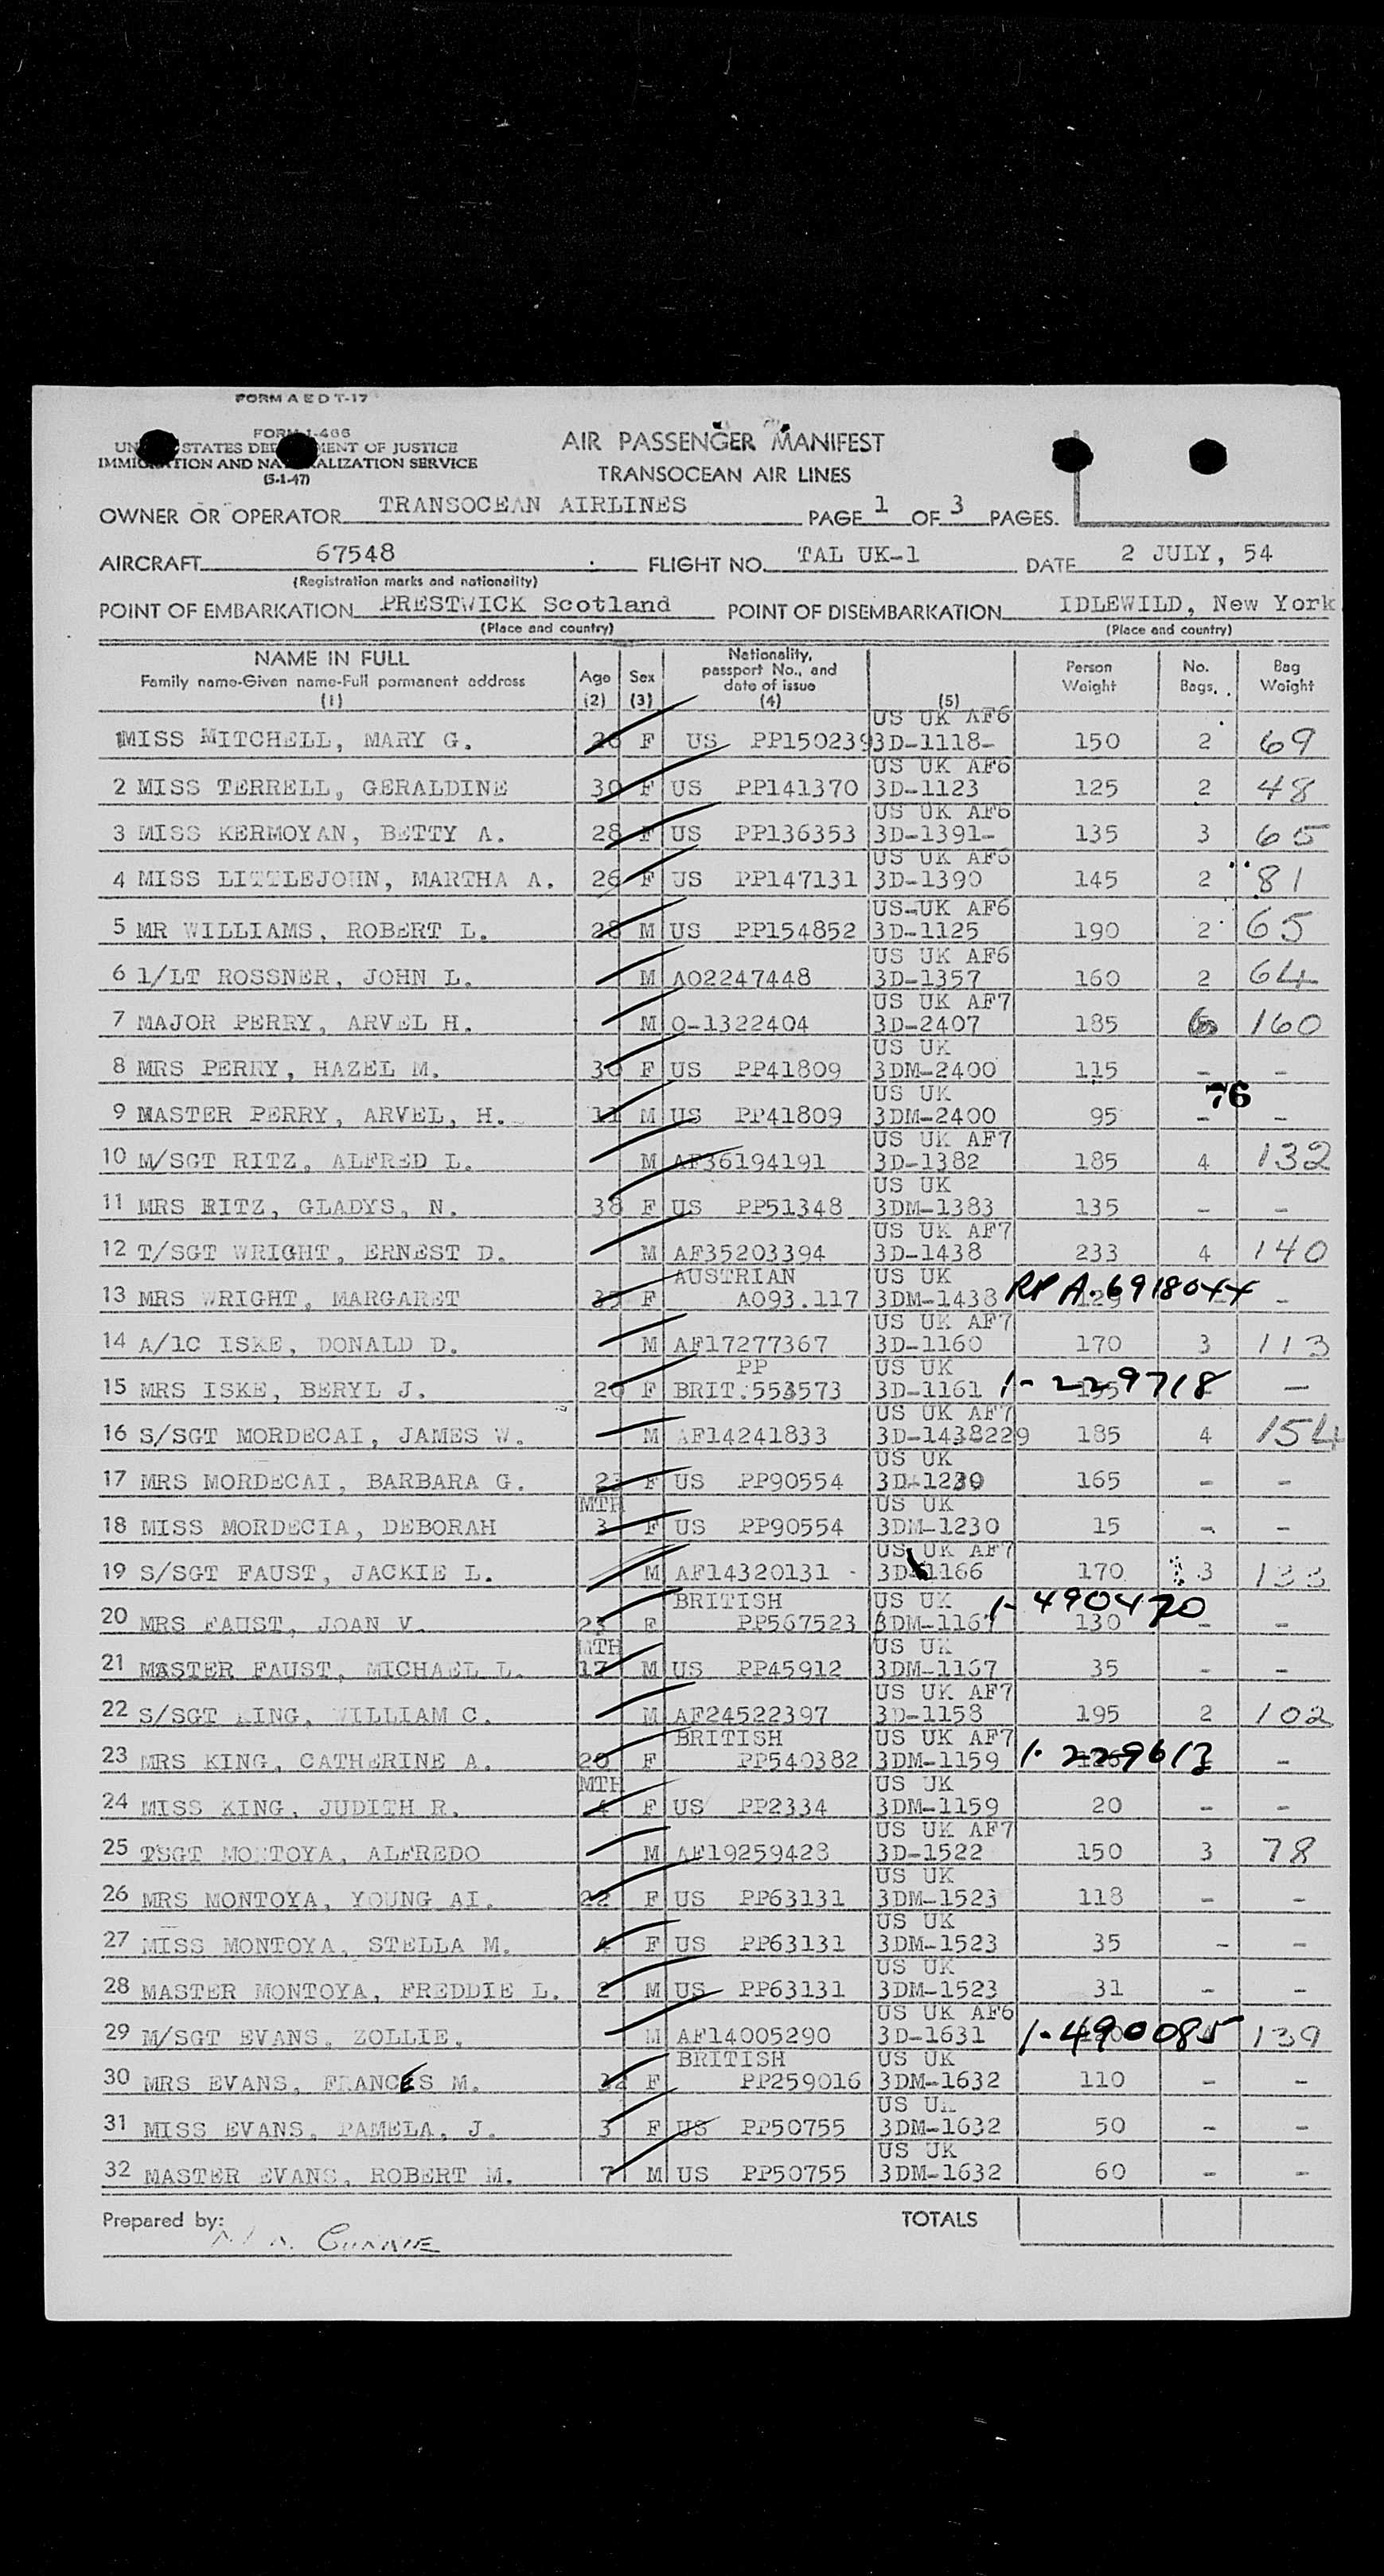 FORM A E D T-17
FORM I-466
UNITED STATES DEPARTMENT OF JUSTICE
IMMIGRATION AND NATURALIZATION SERVICE
(5-1-47)
AIR PASSENGER MANIFEST
TRANSOCEAN AIR LINES
OWNER OR OPERATOR TRANSOCEAN AIRLINES PAGE 1 OF 3 PAGES.
AIRCRAFT 67548 FLIGHT NO. TAL UK-1 DATE 2 JULY, 54
(Registration marks and nationality)
POINT OF EMBARKATION PRESTWICK Scotland POINT OF DISEMBARKATION IDLEWILD, New York
(Place and country) (Place and country)
NAME IN FULL Family name-Given name-Full permanent address (1) Age (2) Sex (3) Nationality, passport No., and date of issue (4) (5) Person Weight No. Bags. Bag Weight
US UK AF6
1 MISS MITCHELL, MARY G. F US PP150239 3D-1118- 150 2 69
US UK AF6
2 MISS TERRELL, GERALDINE 30 F US PP141370 3D-1123 125 2 48
US UK AF6
3 MISS KERMOYAN, BETTY A. 28 F US PP136353 3D-1391- 135 3 65
US UK AF6
4 MISS LITTLEJOHN, MARTHA A. 26 F US PP147131 3D-1390 145 2 81
US-UK AF6
5 MR WILLIAMS, ROBERT L. 28 M US PP154852 3D-1125 190 2 65
US UK AF6
6 1/LT ROSSNER, JOHN L. M AO2247448 3D-1357 160 2 64
US UK AF7
7 MAJOR PERRY, ARVEL H. M O-1322404 3D-2407 185 6 160
US UK
8 MRS PERRY, HAZEL M. 30 F US PP41809 3DM-2400 115 - -
US UK 76
9 MASTER PERRY, ARVEL, H. 11 M US PP41809 3DM-2400 95 - -
US UK AF7
10 M/SGT RITZ, ALFRED L. M AF36194191 3D-1382 185 4 132
US UK
11 MRS RITZ, GLADYS, N. 38 F US PP51348 3DM-1383 135 - -
US UK AF7
12 T/SGT WRIGHT, ERNEST D. M AF35203394 3D-1438 233 4 140
AUSTRIAN US UK
13 MRS WRIGHT, MARGARET F A093.117 3DM-1438 RP A-6918044 -
US UK AF7
14 A/1C ISKE, DONALD D. M AF17277367 3D-1160 170 3 113
PP US UK
15 MRS ISKE, BERYL J. 20 F BRIT.553573 3D-1161 1-229718 -
US UK AF7
16 S/SGT MORDECAI, JAMES W. M AF14241833 3D-1438229 185 4 154
US UK
17 MRS MORDECAI, BARBARA G. F US PP90554 3D-1230 165 - -
MTH US UK
18 MISS MORDECIA, DEBORAH 3 F US PP90554 3DM-1230 15 - -
US UK AF7
19 S/SGT FAUST, JACKIE L. M AF14320131 - 3D-1166 170 3 133
BRITISH US UK 1-490470
20 MRS FAUST, JOAN V. 23 F PP567523 3DM-1167 130 - -
MTH US UK
21 MASTER FAUST, MICHAEL L. 17 M US PP45912 3DM-1167 35 - -
US UK AF7
22 S/SGT KING, WILLIAM C. M AF24522397 3D-1158 195 2 102
BRITISH US UK AF7
23 MRS KING, CATHERINE A. 20 F PP540382 3DM-1159 1-229613 -
MTH US UK
24 MISS KING, JUDITH R. 4 F US PP2334 3DM-1159 20 - -
US UK AF7
25 TSGT MONTOYA, ALFREDO M AF19259428 3D-1522 150 3 78
US UK
26 MRS MONTOYA, YOUNG AI. 22 F US PP63131 3DM-1523 118 - -
US UK
27 MISS MONTOYA, STELLA M. 4 F US PP63131 3DM-1523 35 - -
US UK
28 MASTER MONTOYA, FREDDIE L. 2 M US PP63131 3DM-1523 31 - -
US UK AF6
29 M/SGT EVANS, ZOLLIE, M AF14005290 3D-1631 1-490085 139
BRITISH US UK
30 MRS EVANS, FRANCES M. 32 F PP259016 3DM-1632 110 - -
US UK
31 MISS EVANS, PAMELA, J. 3 F US PP50755 3DM-1632 50 - -
US UK
32 MASTER EVANS, ROBERT M. 7 M US PP50755 3DM-1632 60 - -
Prepared by: TOTALS